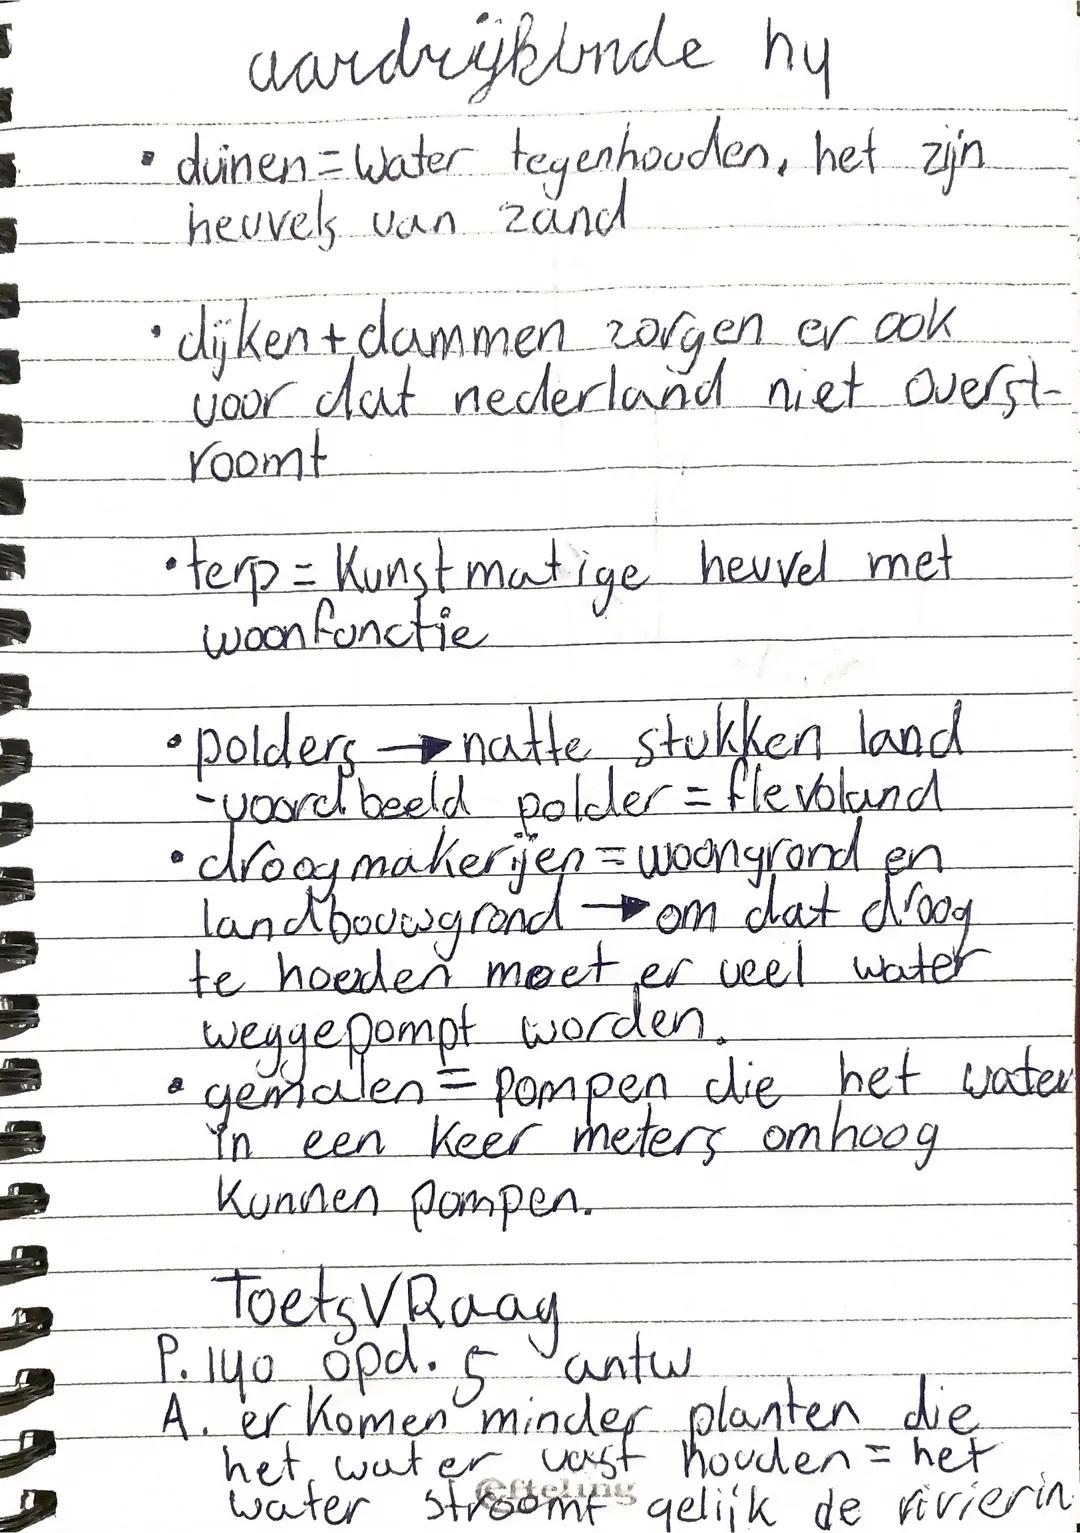 aardrijkunde hy
• duinen = Water tegenhouden, het zijn
heuvels van zand
• dijken + dammen zorgen er ook
voor dat nederland niet overst-
roomt
• terp = Kunstmatige heuvel met
woonfunctie
• polders → natte stukken land
- voordbeeld polder = flevoland
• droogmakerijen = woongrond en
landbouwgrond → om dat droog
te hoeden moet er veel water
weggepompt worden.
• gemalen = pompen die het water
in een keer meters omhoog
kunnen pompen.
ToetsVRaag
P. 140 opd. 5 antw
A. er komen minder planten die
het water vast houden = het
water stroomt gelijk de rivier in
Efteling